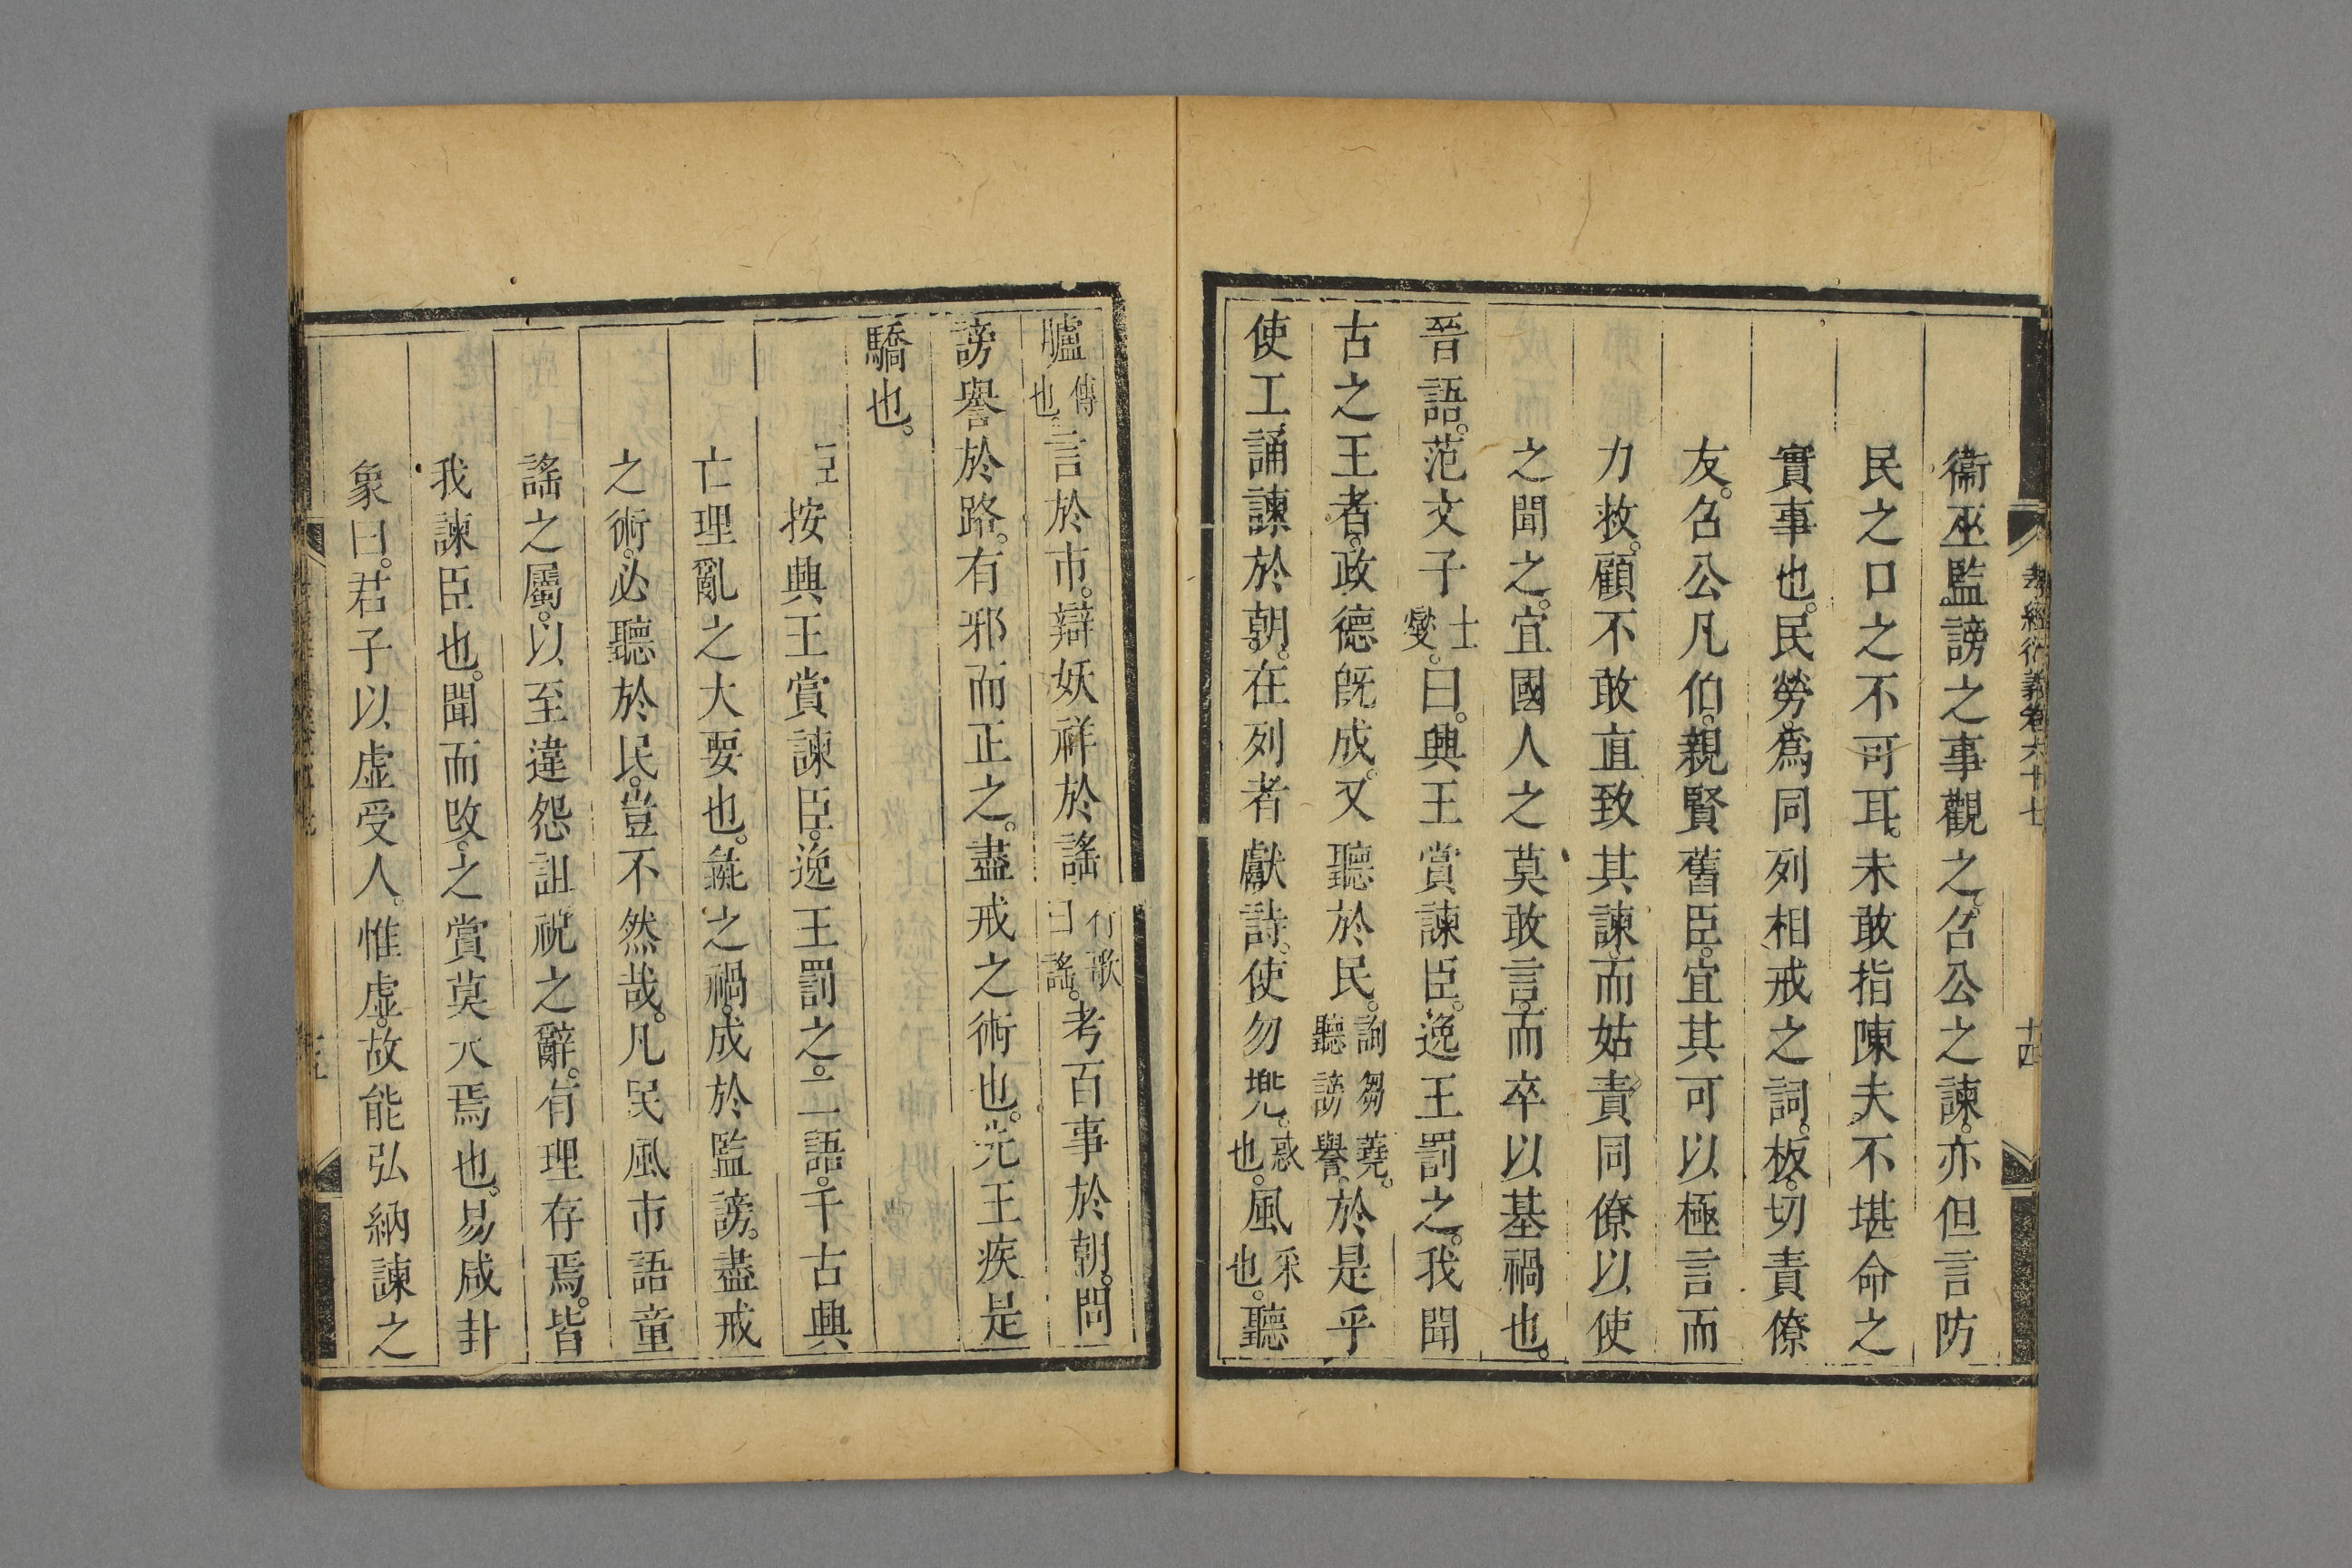 孝經衍義卷六十七
十四
衞巫監謗之事觀之。召公之諫。亦但言防
民之口之不可耳。未敢指陳夫不堪命之
實事也。民勞。爲同列相戒之詞。板。切責僚
友。召公凡伯。親賢舊臣。宜其可以極言而
力救。顧不敢直致其諫。而姑責同僚以使
之聞之。宜國人之莫敢言。而卒以基禍也。
晉語。范文子士燮。曰。興王賞諫臣。逸王罰之。我聞
古之王者。政德旣成。又聽於民。詢芻蕘。聽謗譽。於是乎
使工誦諫於朝。在列者獻詩。使勿兠。惑也。風采也。聽
臚傳也。言於市。辯妖祥於謠行歌曰謠。考百事於朝。問
謗譽於路。有邪而正之。盡戒之術也。先王疾是
驕也。
臣按興王賞諫臣。逸王罰之。二語。千古興
亡理亂之大要也。彘之禍。成於監謗。盡戒
之術。必聽於民。豈不然哉。凡民風市語童
謠之屬。以至違怨詛祝之辭。有理存焉。皆
我諫臣也。聞而改之。賞莫大焉也。易咸卦
象曰。君子以虛受人。惟虛。故能弘納諫之